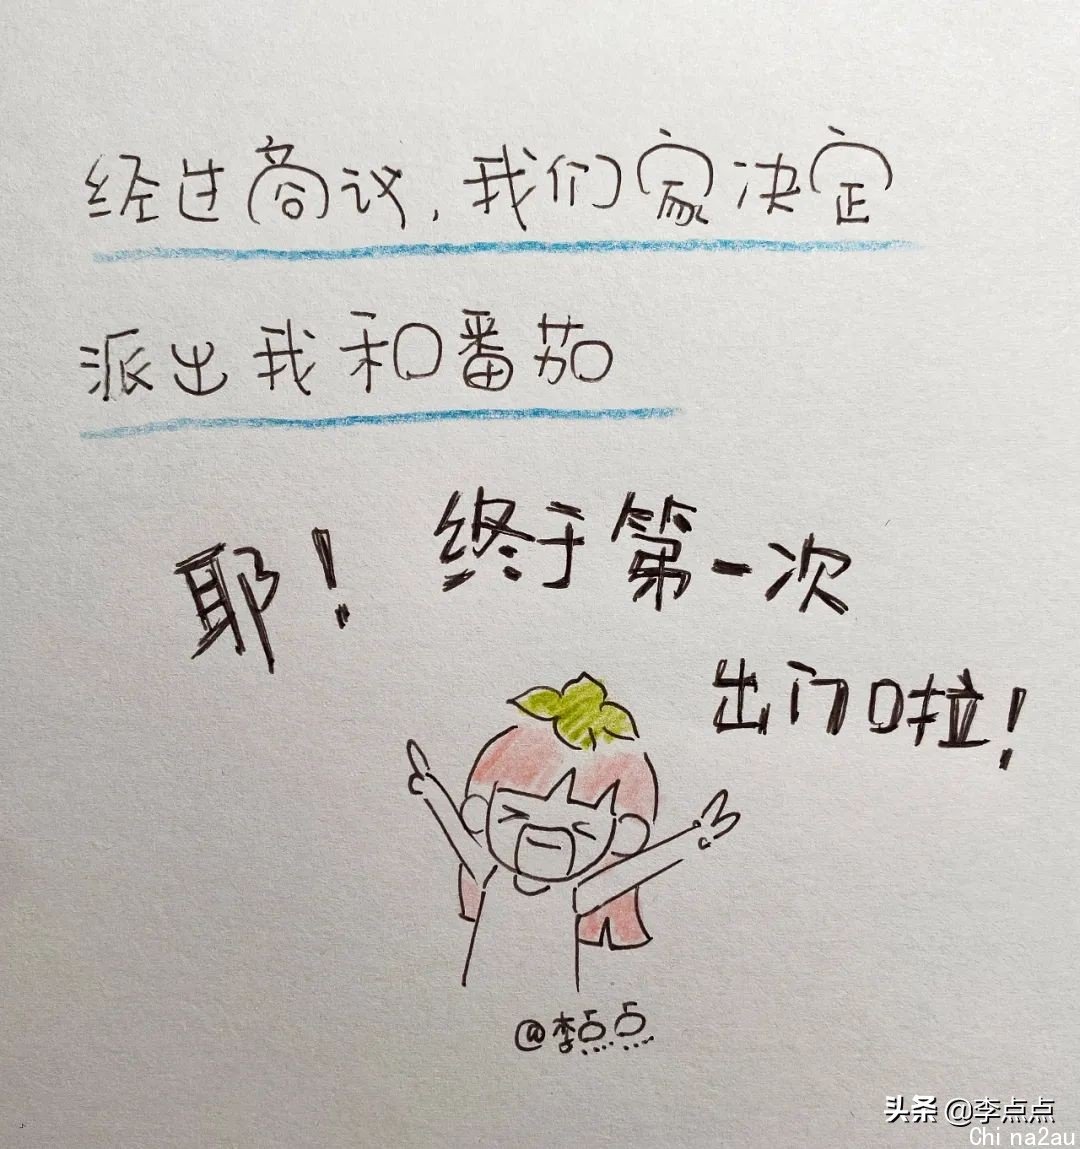 经过商议，我们家决定
派出我和番茄
耶！终于第一次
出门啦！
@李点点
头条 @李点点
Chi na2au